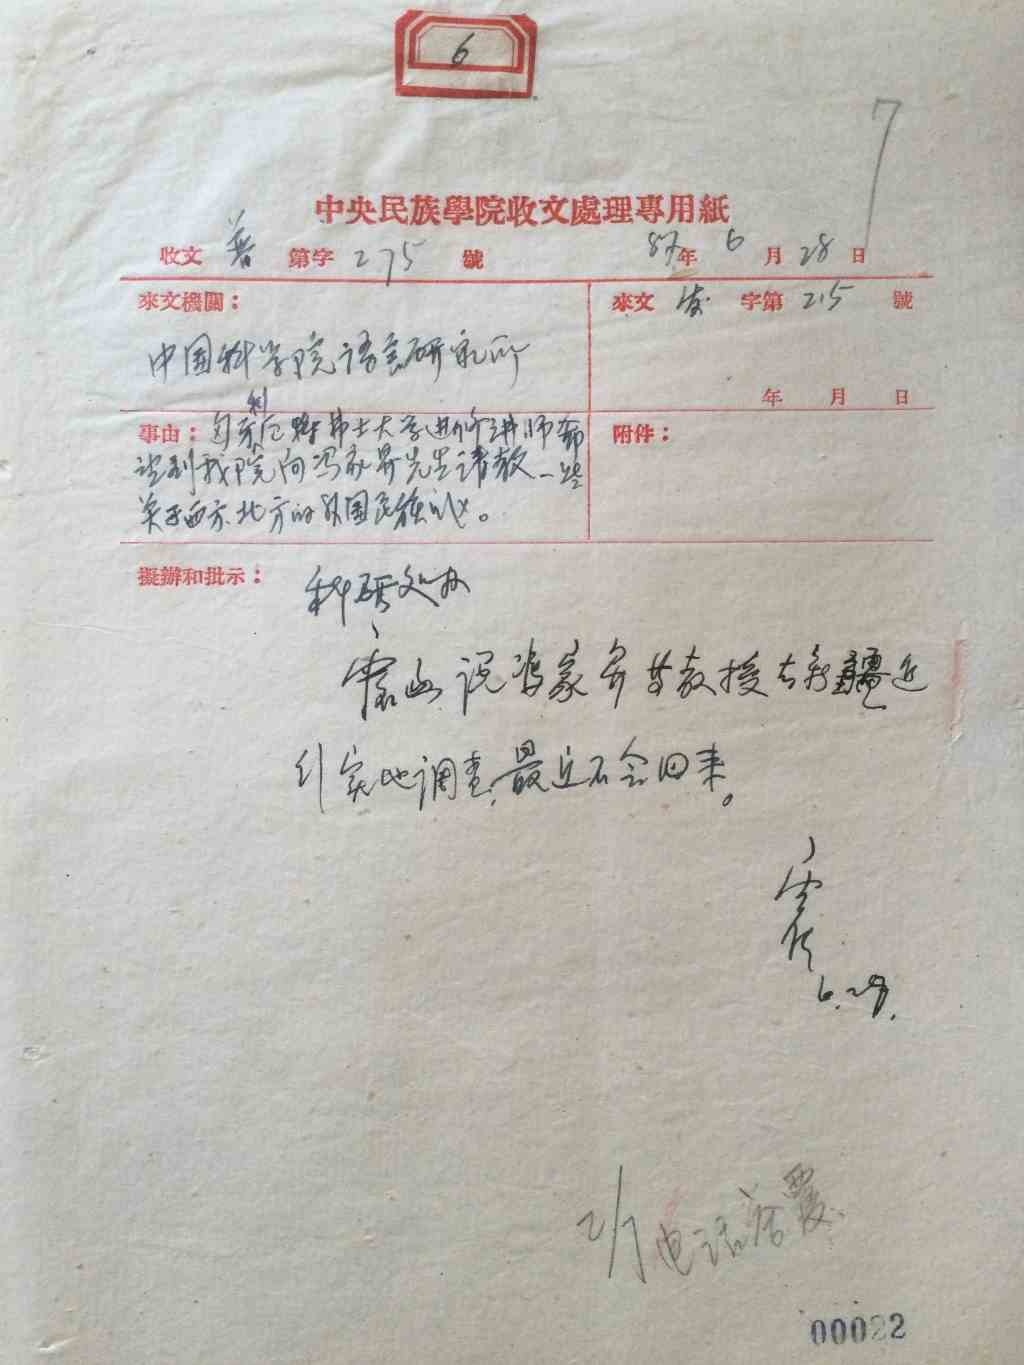 6
7
中央民族學院收文處理專用紙
收文 普 第字 275 號 57年 6月 28日
來文機關：
中国科学院语言研究所
來文 发 字第 215 號
年 月 日
事由：匈牙利厄特弗士大学进修讲师
到我院向冯家昇先生请教一些
关于西方、北方的外国民族
附件：
擬辦和批示：
科研处办
说冯家昇教授去新疆进
行实地调查，最近不会回来。
6.28.
2/7 电话答覆
00022